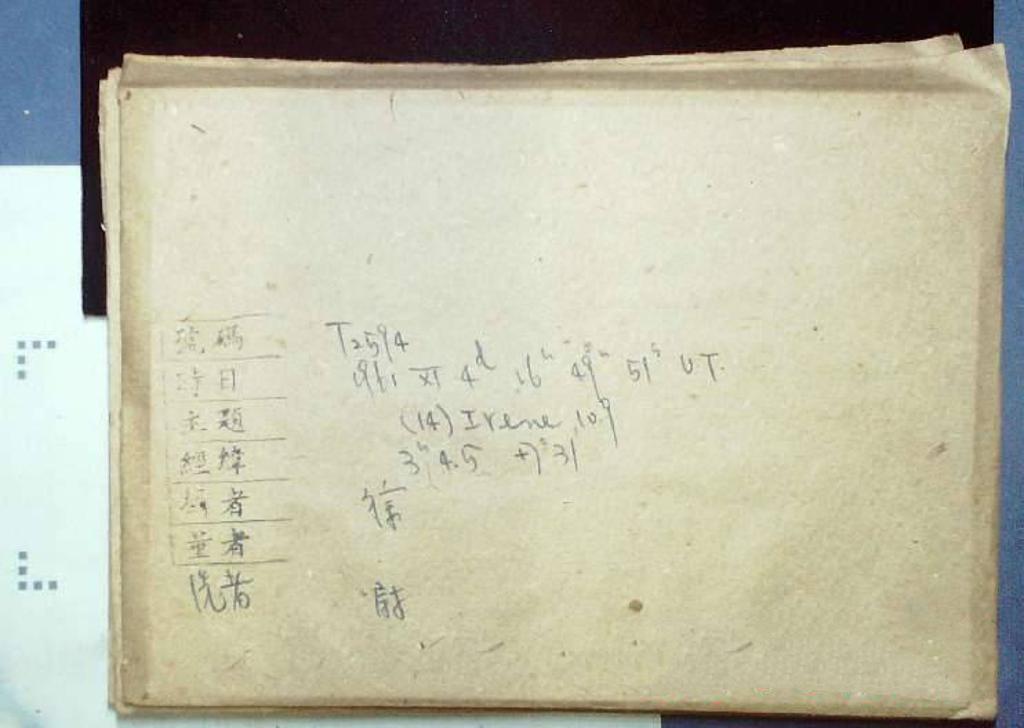 號碼 T2594
時日 1961 XI 4d 16h 49m 51s U.T.
主題 (14) Irene 10.9
經緯 3h 4.5 +7° 31'
者 徐
量者
洗者 尉